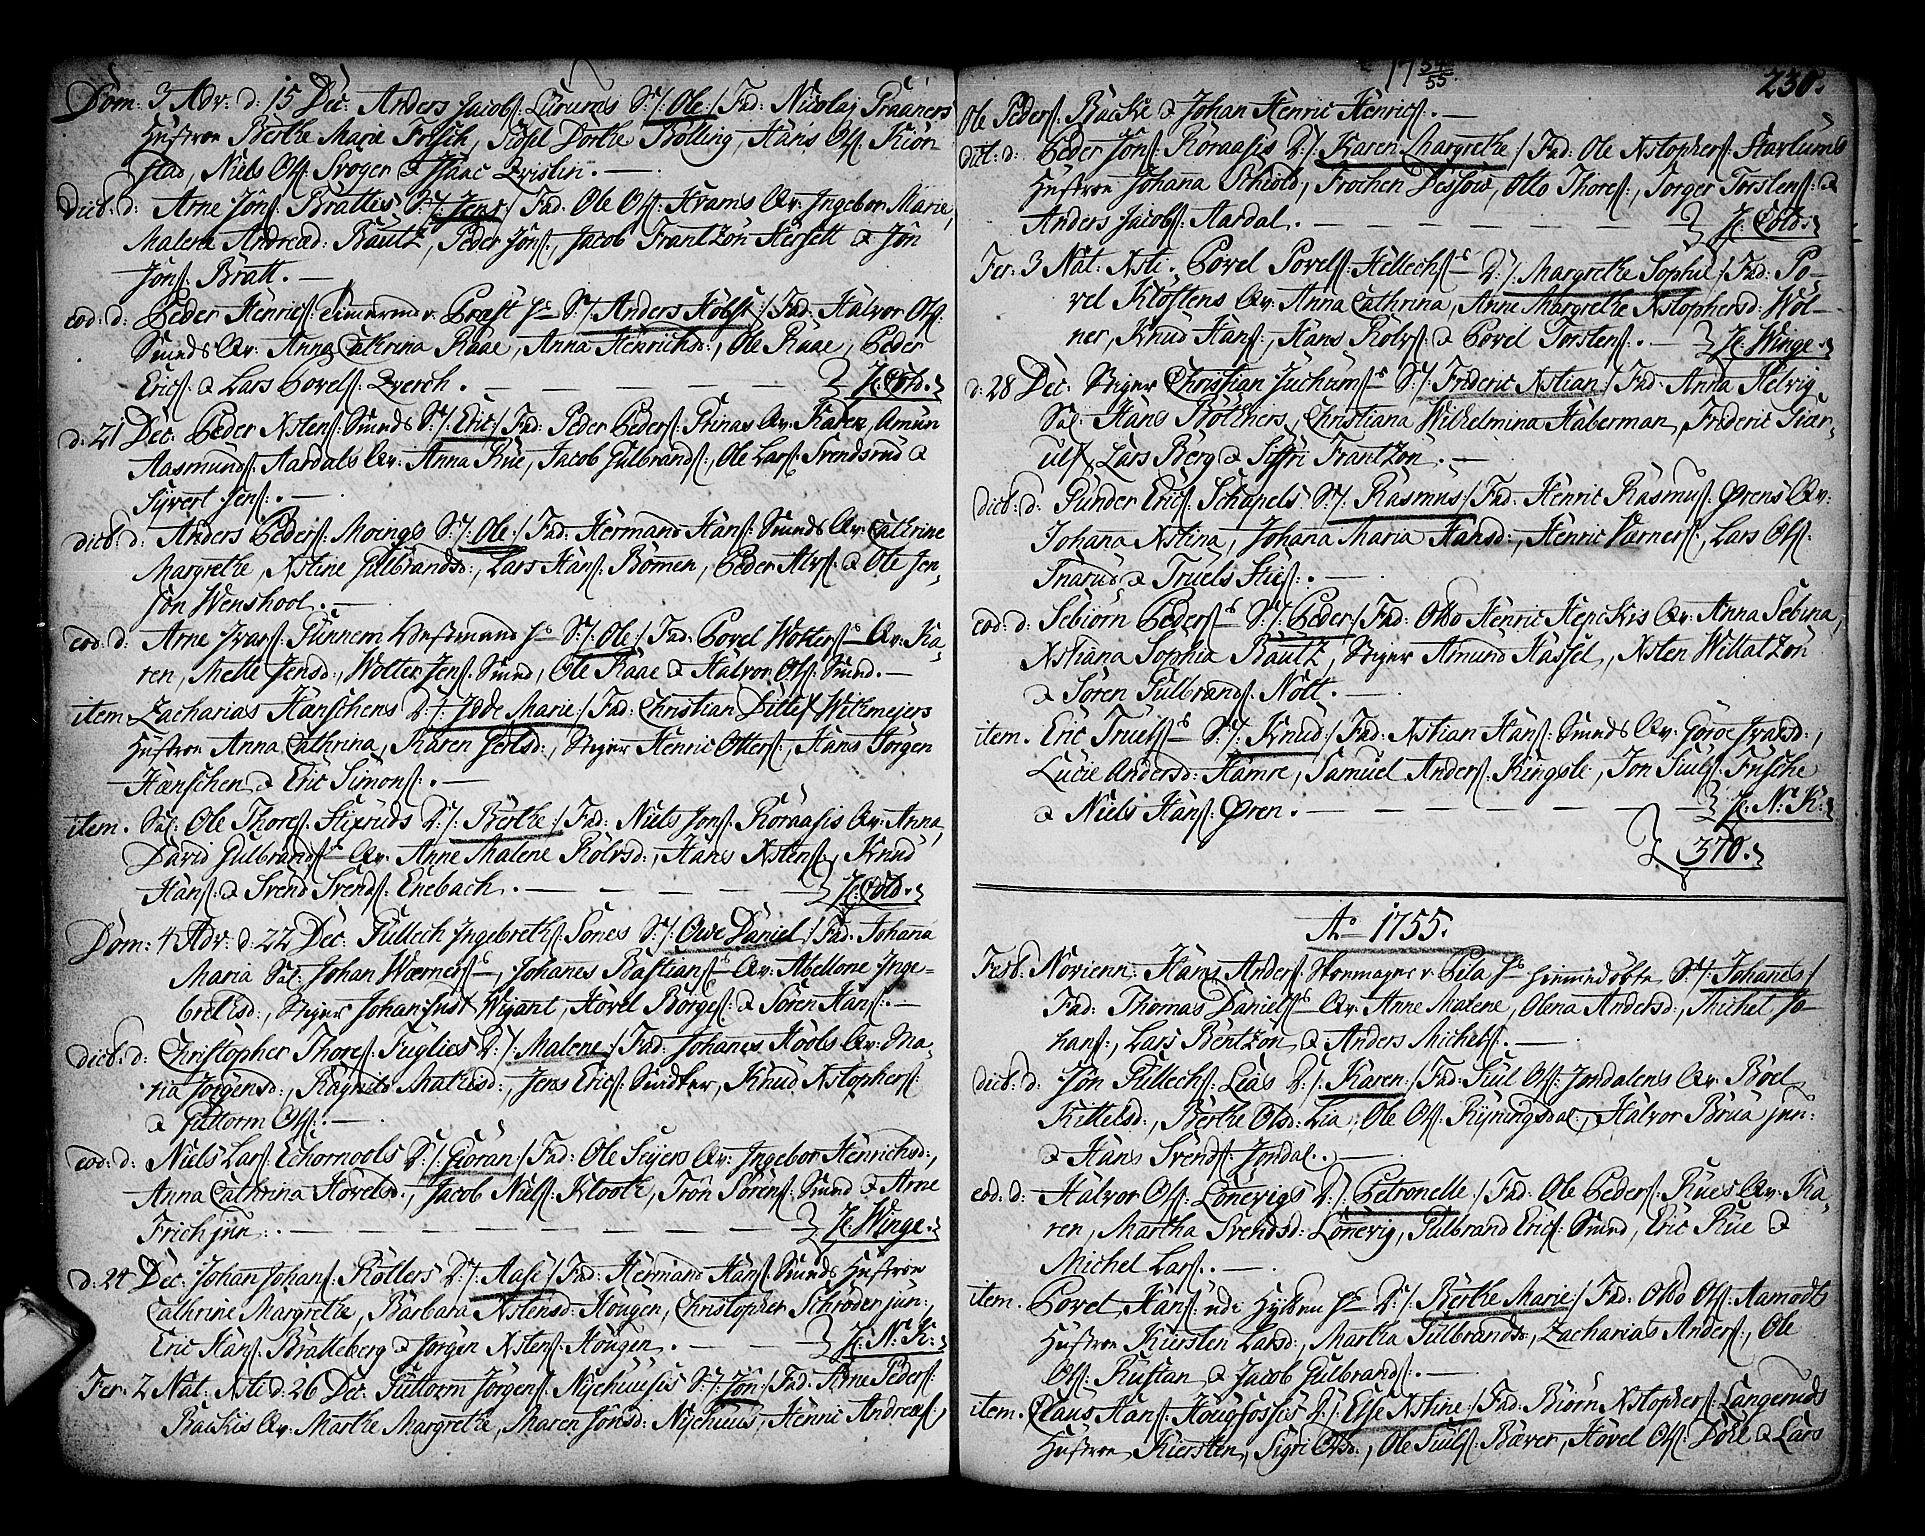 Dom. 3 Adv: d: 15 Dec. Anders Jacobs: Lurums S: /: Ole :/ Fad: Nicolaj Praaners
Hustroe Berthe Marie Frisch, Sidsel Dorthe Bolling, Hans Ols: Kiön-
stad, Niels Ols: Svoger & Isaac Qvislin. —
dict: d: Arne Jöns: Brattes S: /: Jens :/ Fad. Ole Ols: Krams Qv: Ingebor Marie,
Malena Andread: Bautz, Peder Jöns:, Jacob Frantzön Hersett & Jön
Jöns: Bratt. —
eod: d: Peder Henrics: S: /: Anders Holst :/ Fad: Halvor Ols:
Smeds Qv: Anna Cathrina Raae, Anna Henrichsd:, Ole Raae, Peder
Erics: & Lars Povels: Qverch. — — — H: Cold.
d: 21 Dec: Peder Xstens: Smeds S: /: Eric :/ Fad: Peder Peders: Prinas Qv: Karen, Amun
Aasmunds: Aardals Qv: Anna Rue, Jacob Gulbrands:, Ole Lars: Svendsrud &
Syvert Jens:. —
dict: d: Anders Peders: Moengs S: /: Ole :/ Fad: Hermand Hans: Smeds Qv: Cathrine
Margrethe, Xstine Gulbrandsd:, Lars Hans: Bömmen, Peder Alvs: & Ole Jen-
sön Wenshool. —
eod: d: Arne Ivars: Tunnem S: /: Ole :/ Fad: Povel Wolters: Qv: Ka-
ren, Mette Jensd:, Wolter Jens: Smed, Ole Raae & Halvor Ols: Smed. —
item. Zacharias Hanschens D: /: Ide Marie :/ Fad: Christian Ditlef Witmejers
Hustroe Anna Cathrina, Karen Jerlsd:, Stiger Henric Otters:, Hans Jörgen
Hanschen & Eric Simons:. —
item. Sal: Ole Thores: Stixruds D: /: Berthe :/ Fad: Niels Jons: Roraasis Qv: Anna,
David Gulbrands: Qv: Anne Malene Rolvsd:, Hans Xstens:, Knud
Hans: & Svend Svends: Enebach. — — — H: Cold.
Dom: 4 Adv: d: 22 Dec: Tullech Ingebreths: Sones S: /: Owe Daniel :/ Fad: Johana
Maria Sal: Johan Wærners:, Johanes Bastians: Qv: Abellone Inge-
bretsd:, Stiger Johan Just Wigant, Hovel Börges: & Sören Hans:. —
dict: d: Christopher Thores: Fuglies D: /: Malene :/ Fad: Johanes Koobs Qv: Ma-
ria Jörgensd:, Ragnild Mathisd:, Jens Erics: Snedker, Knud Xstophers:
& Guttorm Ols:. —
eod: d: Niels Lars: Echornools D: /: Giöran :/ Fad: Ole Seyers Qv: Ingebor Henrichsd:,
Anna Cathrina Hovelsd:, Jacob Niels: Klooth, Trön Sörens: Smed & Arne
Frich jun:. — — — H: Winge.
d: 24 Dec. Johan Johans: Rollers D: /: Aase :/ Fad: Hermand Hans: Smeds Hustroe
Cathrine Margrethe, Barbara Xstensd: Hougen, Christopher Schröder jun:,
Eric Hans: Bratteberg & Jörgen Xstens: Hougen. — — H: N: K:
Fer: 2 Nat: Xsti d: 26 Dec. Guttorm Jörgens: Nyehuusis S: /: Jön :/ Fad: Arne Peders:
Backis Qv: Marthe Margrethe, Maren Jönsd: Nyehuus, Henric Andreas:,
1754/55 230.
Ole Peders: Backe & Johan Henric Henrics:. —
dict: d: Peder Jöns: Roraasis D: /: Karen Margrethe :/ Fad: Ole Xstophers: Starlums
Hustroe Johana Schiold, Frochen Dessow, Otto Thores:, Torger Torstens: &
Anders Jacobs: Aardal. — — — H: Cold.
Fer: 3 Nat: Xsti. Povel Povels: Hellechs: D: /: Margrethe Sophie :/ Fad: Po-
vel Kloftens Qv: Anna Cathrina, Anne Margrethe Xstophersd: Wöl-
ner, Knud Hans:, Hans Rolvs: & Povel Torstens:. — H: Winge.
d: 28 Dec: Stiger Christian Juchums: S: /: Frideric Xstian :/ Fad: Anna Helvig
Sal: Hans Böttchers, Christiana Wilhelmina Haberman, Frideric Svar-
ulf, Lars Berg & Siffri Frantzön. —
dict: d: Gunder Erics: Schapels S: /: Rasmus :/ Fad: Henric Rasmus: Ørens Qv:
Johana Xstina, Johana Maria Hansd:, Henric Varners:, Lars Ols:
Snarud & Truels Hies:. —
eod: d: Sebiörn Peders: S: /: Peder :/ Fad: Otto Henric Henckis Qv: Anna Sebina,
Xstiana Sophia Bautz, Stiger Amund Hassel, Xsten Willatzön
& Sören Gulbrands: Nött. —
item. Eric Truels: S: /: Knud :/ Fad: Xstian Hans: Smeds Qv: Göroe Ivarsd:,
Lucie Andersd: Hamre, Samuel Anders: Kingsle, Jon Siuls: Frische
& Niels Hans: Øren. — — — H: N: K:
370.
Ao 1755.
Fest: Novi enni Hans Anders: S: /: Johanes :/
Fad: Thomas Daniels: Qv: Anne Malene, Olena Andersd:, Michel Jo-
hans:, Lars Bentzon & Anders Michels:. —
dict: d: Jön Tullechs: Lias D: /: Karen :/ Fad: Kul Ols: Jondalens Qv: Boel
Kittelsd:, Berthe Olsd: Lia, Ole Ols: Ryningsdal, Halvor Brua jun:
& Hans Svends: Jondal. —
eod: d: Halvor Ols: Lönevigs D: /: Petronelle :/ Fad: Ole Peders: Rues Qv: Ka-
ren, Martha Svendsd: Lönevig, Gulbrand Erics: Smed, Eric Rue &
Michel Lars:. —
item. Povel Hans: D: /: Berthe Marie :/ Fad: Otto Ols: Aamodts
Hustroe Kiersten Larsd:, Martha Gulbrands:, Zacharias Anders:, Ole
Ols: Rustan & Jacob Gulbrands:. —
item. Claus Hans: Hougfossis D: /: Else Xstine :/ Fad: Biörn Xstophers: Langeruds
Hustroe Kiersten, Sigri Olsd:, Ole Siuls: Bæver, Hovel Ols: Dohl & Lars